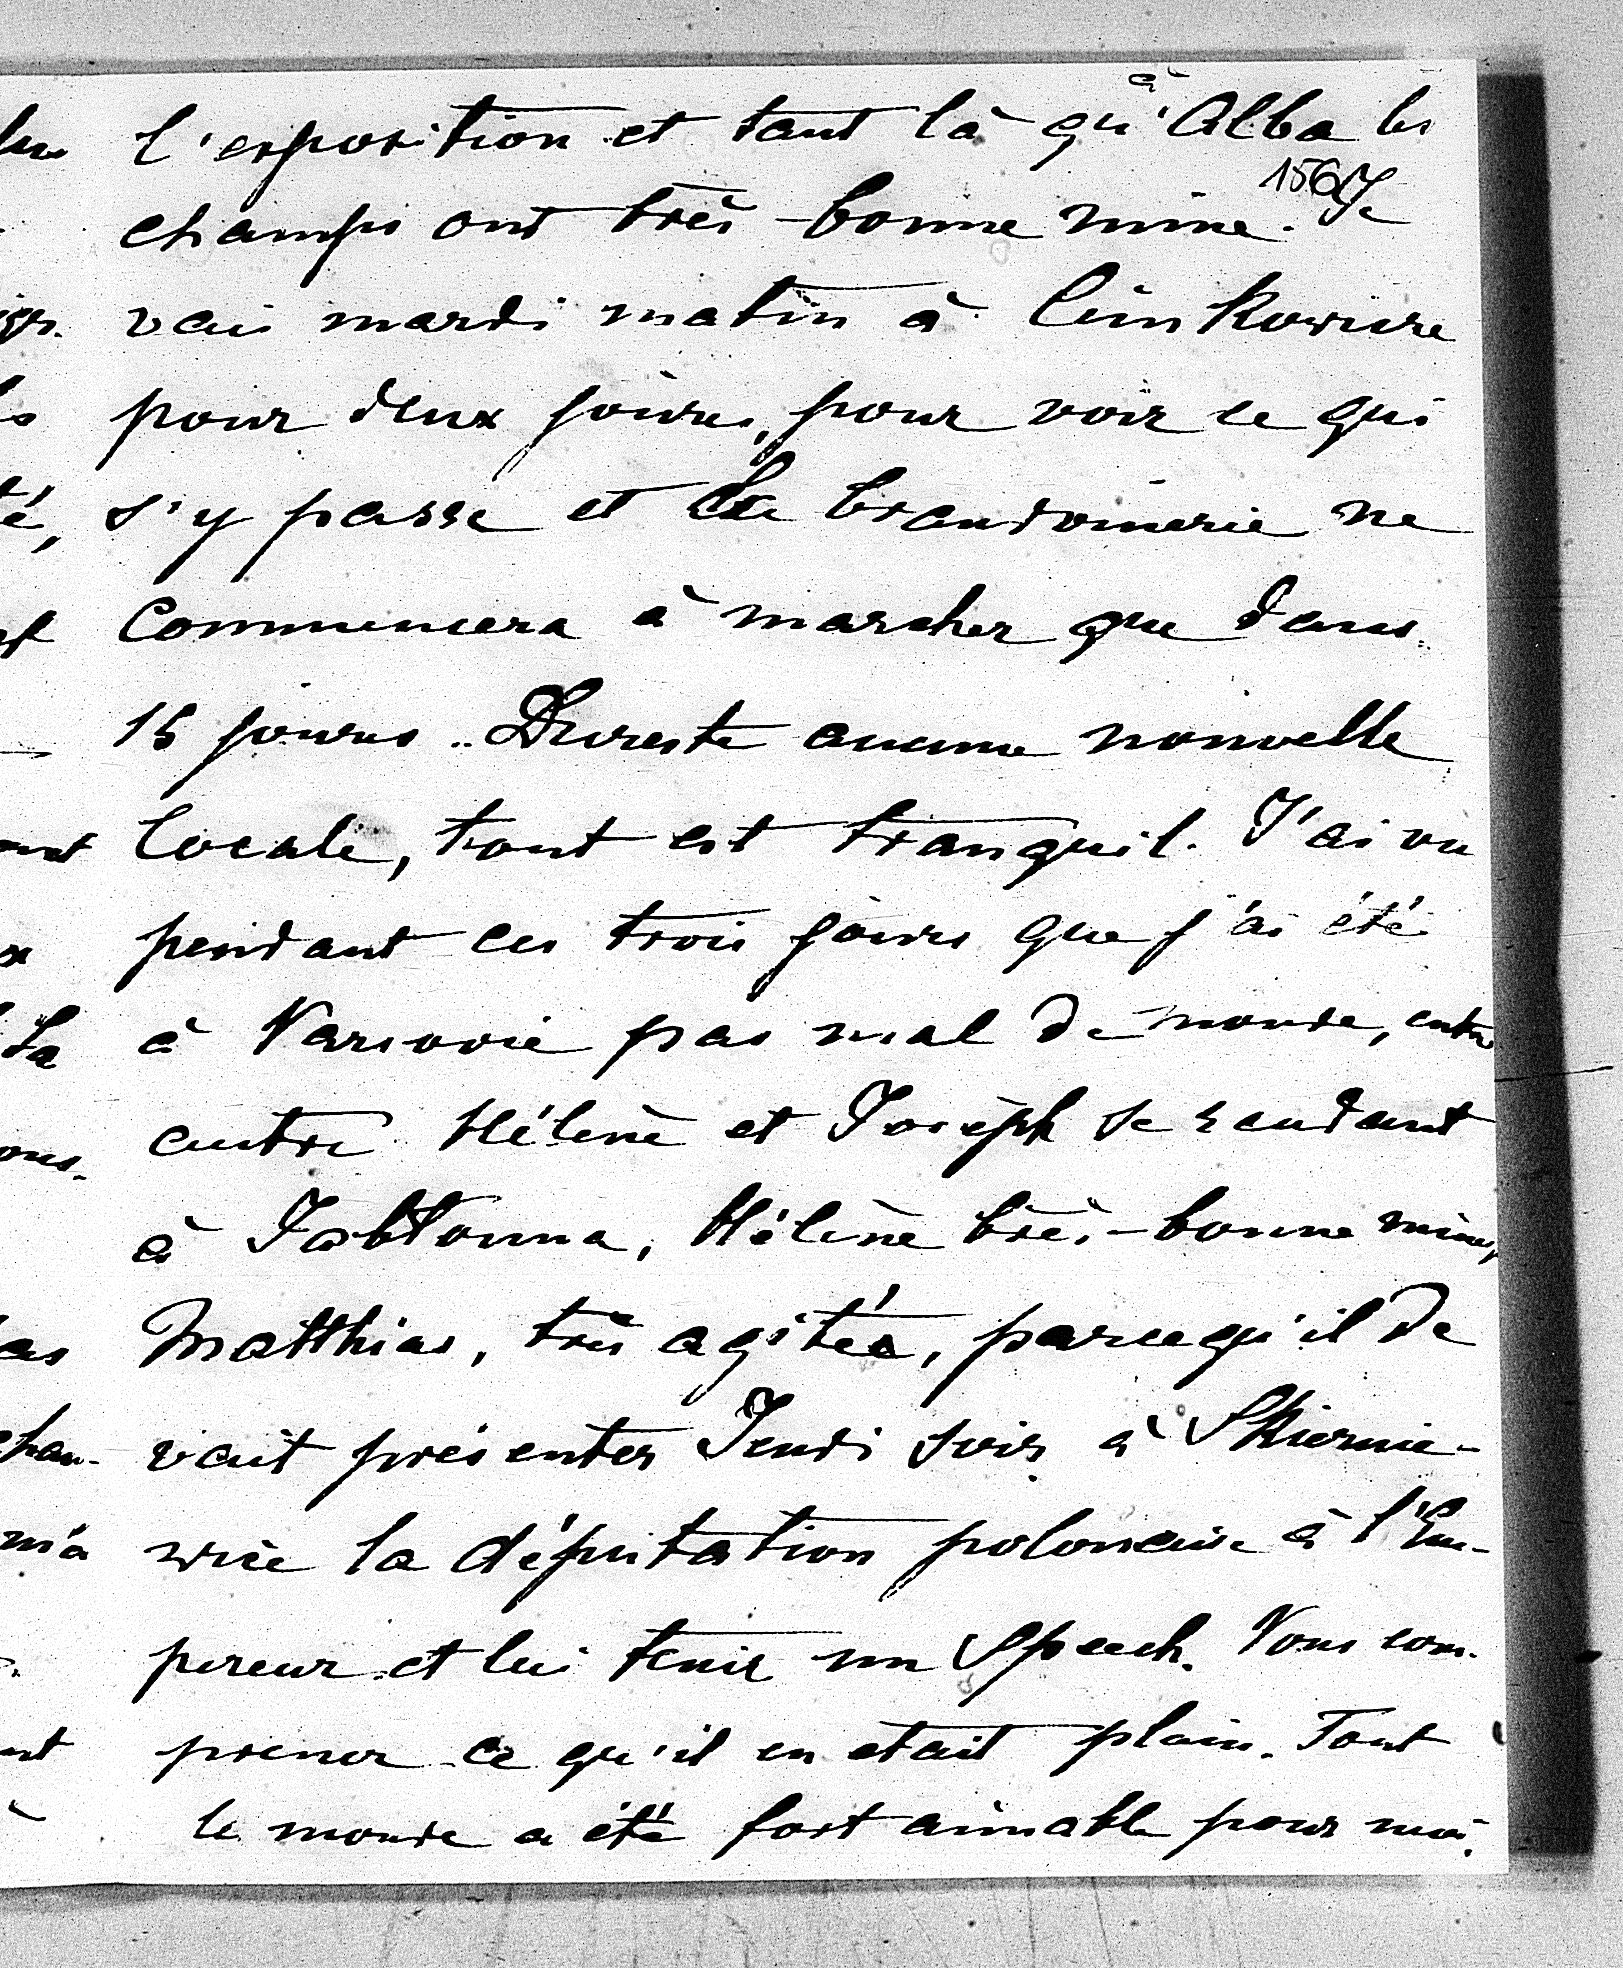 l'exposition et tant là qu'à Alba les
156
champs ont très-bonne mine. Je
vais mardi matin à
pour deux jours, pour voir ce qui
s'y passe et la brandvinerie ne
commencera à marcher que dans
15 jours. Dureste aucune nouvelle
locale, tout est tranquil. J'ai vu
pendant ces trois jours que j'ai été
à Varsovie pas mal de monde, entre
autre Hélène et Joseph se rendant
à Jabłonna, Hélène très-bonne mine,
Matthias, très agitée, parcequ'il de
vait présenter Jeudi soir à Skiernie-
wice la députation polonaise à l'Em-
pereur et lui tenir un Speech. Vous com-
prenez ce qu'il en etait plain. Tout
le monde a été fort aimable pour moi.